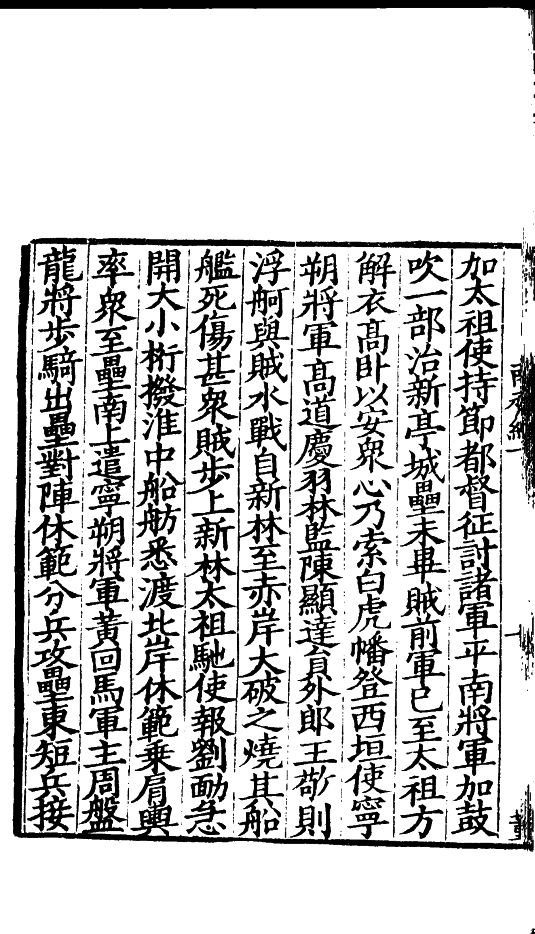 加太祖使持節都督征討諸軍平南將軍加鼓
吹一部治新亭城壘未畢賊前軍已至太祖方
解衣髙卧以安衆心乃索白虎幡登西垣使寧
朔將軍髙道慶羽林監陳顯達貟外郎王敬則
浮舸與賊水戰自新林至赤岸大破之燒其船
艦死傷甚衆賊步上新林太祖馳使報劉勔急
開大小桁撥淮中船舫悉渡北岸休範乗肩輿
率衆至壘南上遣寧朔將軍黃回馬軍主周盤
龍將步騎出壘對陣休範分兵攻壘東短兵接